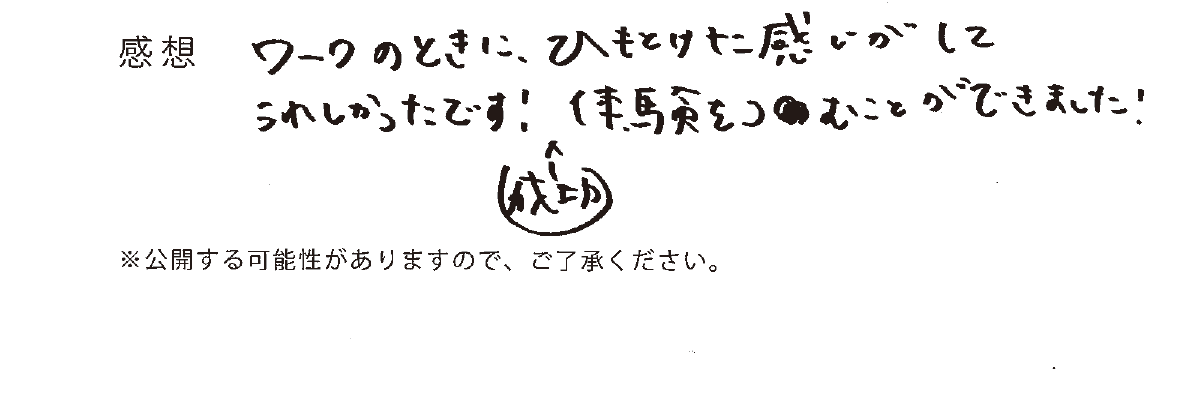 感想 ワークのときに、ひもとけた感じがして
うれしかったです！体験をつむことができました！
成功
※公開する可能性がありますので、ご了承ください。